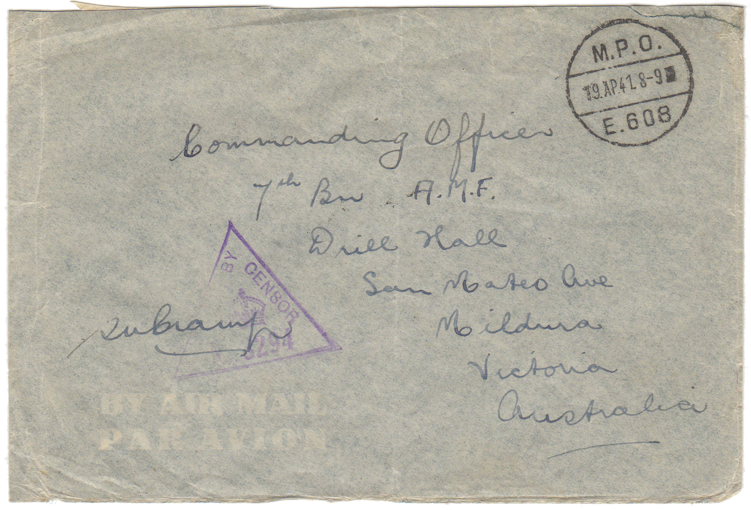 M.P.O.
19.AP.41.8-9
E.608
Commanding Officer
7th Bn. A.M.F.
Drill Hall
San Mateo Ave
Mildura
Victoria
Australia
BY CENSOR
3294
BY AIR MAIL
PAR AVION